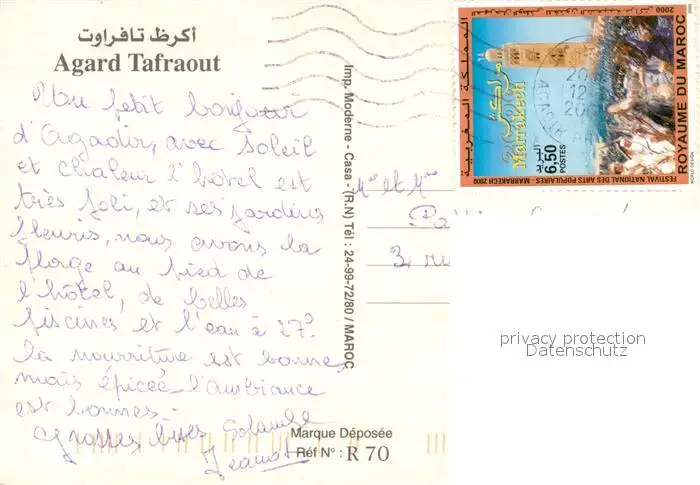 أكرظ تافراوت
Agard Tafraout
Un petit bonjour
d'Agadir, avec Soleil
et chaleur l'hôtel est
très joli, et ses jardins
fleuris, nous avons la
plage au pied de
l'hôtel, de belles
piscines et l'eau à 27°.
la nourriture est bonne
mais épicée l'ambiance
est bonnes.-
Grosses bises
Imp. Moderne - Casa - (R.N) Tél : 24-99-72/80 / MAROC
Mr et Mme
3, ru
Marque Déposée
Réf N° : R 70
المملكة المغربية
مراكش
Marrakech
البريد
6,50
POSTES
FESTIVAL NATIONAL DES ARTS POPULAIRES - MARRAKECH 2000
ROYAUME DU MAROC
privacy protection
Datenschutz